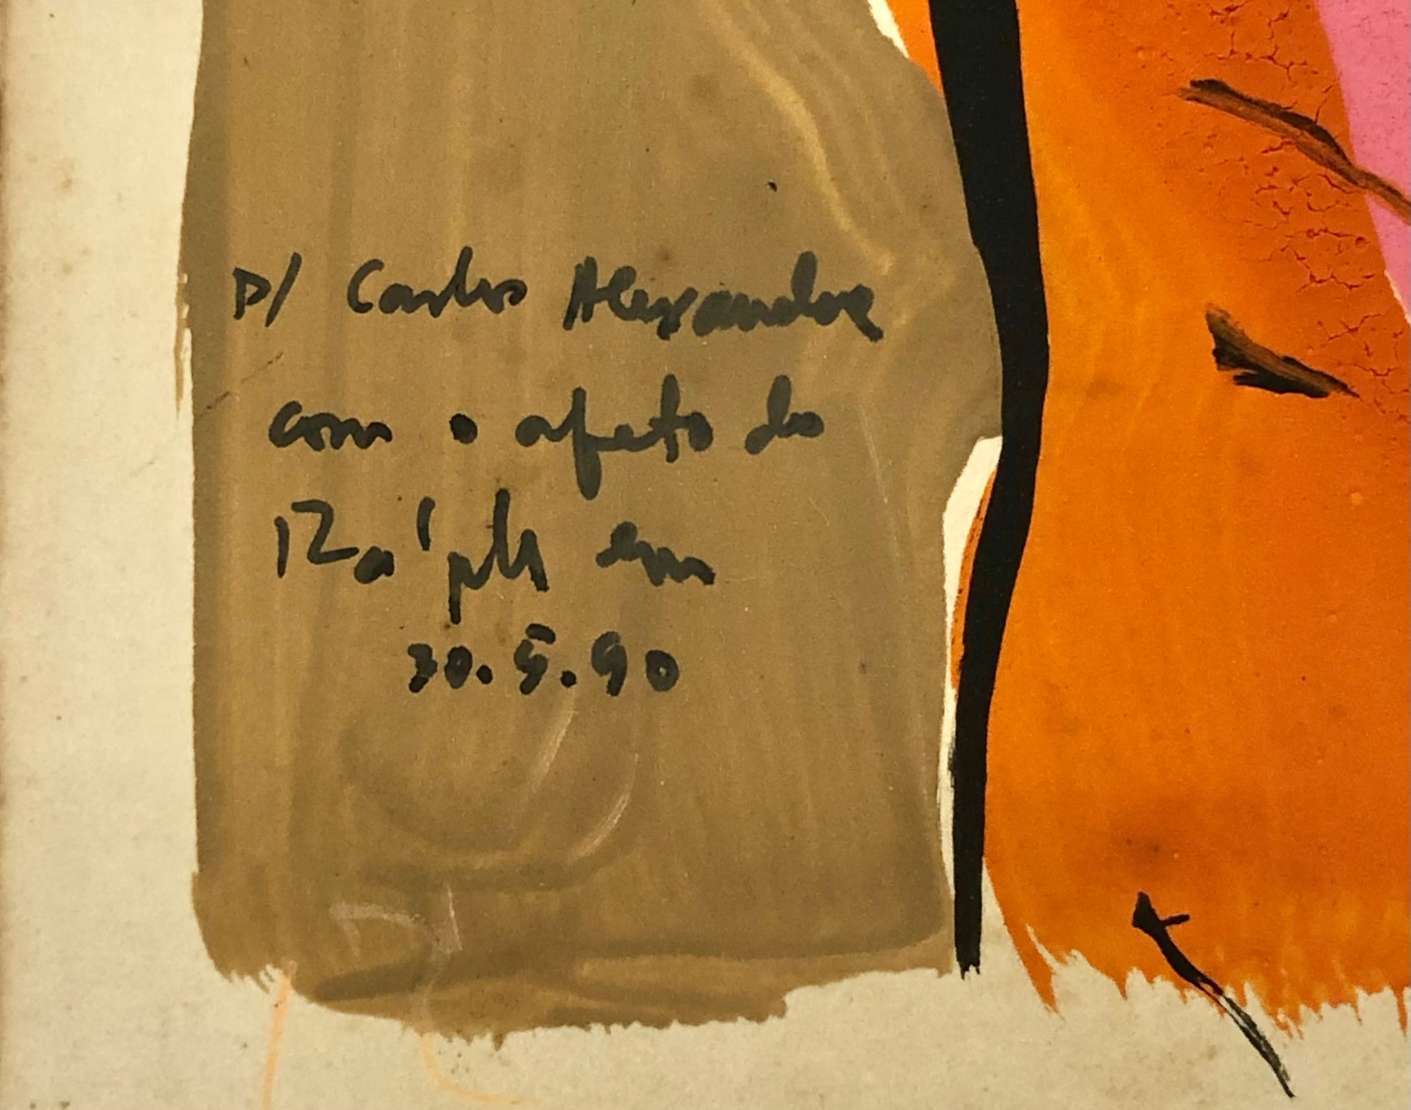 p/ Carlos Alexandre
com o afeto do
Raul em
30.5.90